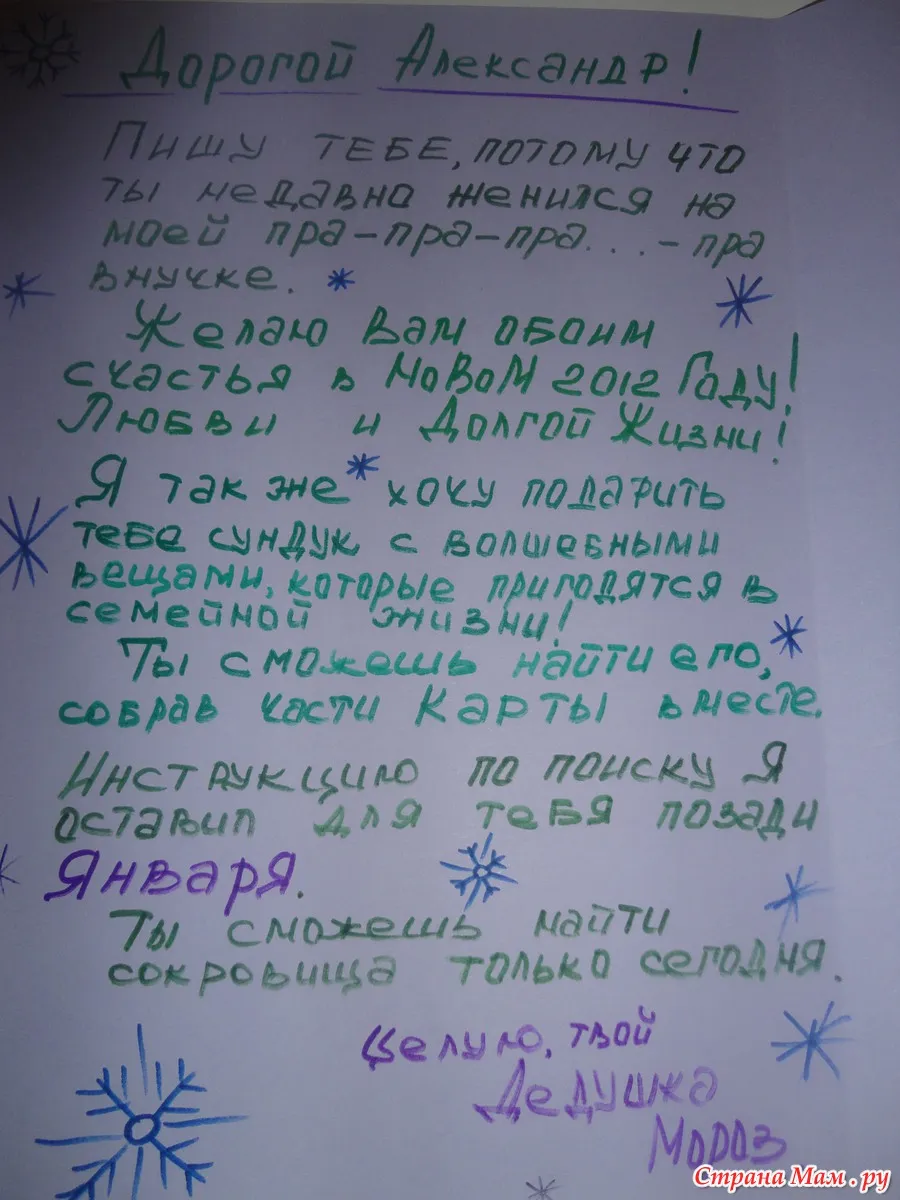 Дорогой Александр!
Пишу тебе, потому что
ты недавно женился на
моей пра-пра-пра...-пра
внучке.
Желаю Вам обоим
счастья в НоВоМ 2012 Году!
Любви и Долгой Жизни!
Я так же хочу подарить
тебе сундук с волшебными
вещами, которые пригодятся в
семейной жизни!
Ты сможешь найти его,
собрав части Карты вместе.
Инструкцию по поиску Я
оставил для тебя позади
Января.
Ты сможешь найти
сокровища только сегодня.
Целую, твой
Дедушка
Мороз
Страна Мам.ру